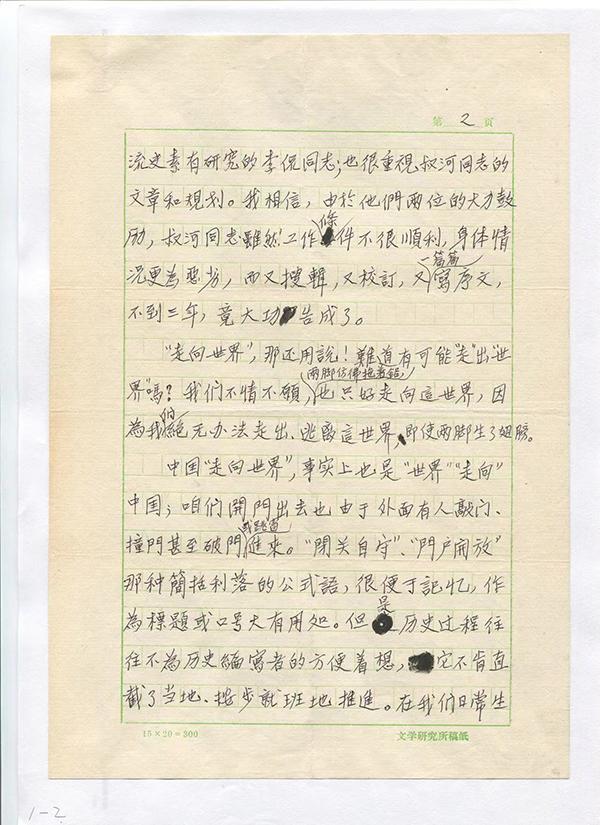 第 2 页
流史素有研究的李侃同志;也很重視叔河同志的
文章和規划。我相信，由於他們兩位的大力鼓
條
励，叔河同志雖然工作件不很順利，身体情
一篇篇
况更為惡劣，而又搜輯，又校訂，又寫序文，
不到三年，竟大功告成了。
“走向世界”，那还用說！難道有可能“走”出“世
兩脚仿佛拖着鉛，
界”嗎？我們不情不願，也只好走向這世界，因
們
為我絕无办法走出、逃避這世界，即使兩脚生了翅膀。
中国“走向世界”，事实上也是“世界”“走向”
中国；咱们開門出去也由于外面有人敲门、
撞門甚至破門進來。“閉关自守”、“門户開放”
那种簡括利落的公式語，很便于記忆，作
為標題或口号大有用処。但
是
历史过程往
往不為历史編寫者的方便着想，它不肯直
截了当地、按步就班地推進。在我们日常生
15×20=300
文学研究所稿紙
1-2